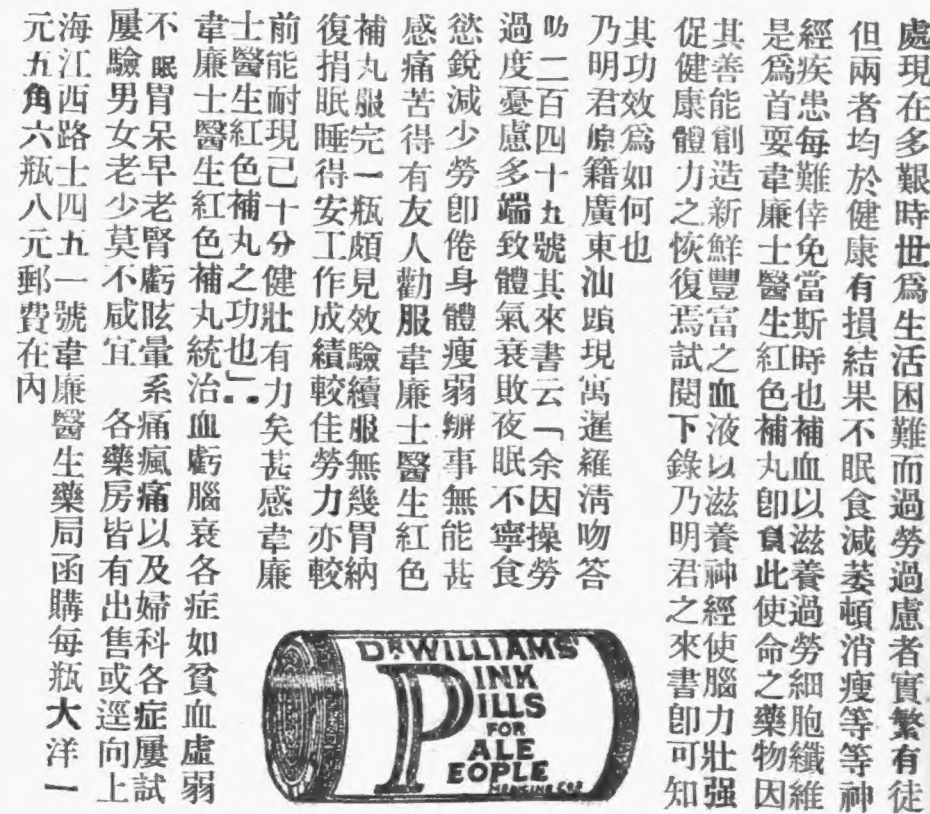 處現在多艱時世爲生活困難而過勞過慮者實繁有徒
但兩者均於健康有損結果不眠食減萎頓消瘦等等神
經疾患每難倖免當斯時也補血以滋養過勞細胞纖維
是爲首要韋廉士醫生紅色補丸卽負此使命之藥物因
其善能創造新鮮豐富之血液以滋養神經使腦力壯强
促健康體力之恢復焉試閱下錄乃明君之來書卽可知
其功效爲如何也
乃明君原籍廣東汕頭現寓暹羅淸吻答
叻二百四十九號其來書云「余因操勞
過度憂慮多端致體氣衰敗夜眠不寧食
慾銳減少勞卽倦身體瘦弱辦事無能甚
感痛苦得有友人勸服韋廉士醫生紅色
補丸服完一瓶頗見效驗續服無幾胃納
復捐眠睡得安工作成績較佳勞力亦較
前能耐現己十分健壯有力矣甚感韋廉
士醫生紅色補丸之功也」
韋廉士醫生紅色補丸統治血虧腦衰各症如貧血虛弱
不眠胃呆早老腎虧眩暈系痛瘋痛以及婦科各症屢試
屢驗男女老少莫不咸宜 各藥房皆有出售或逕向上
海江西路士四五一號韋廉醫生藥局函購每瓶大洋一
元五角六瓶八元郵費在內
DR WILLIAMS'
PINK
PILLS
FOR
PALE
PEOPLE
MEDICINE